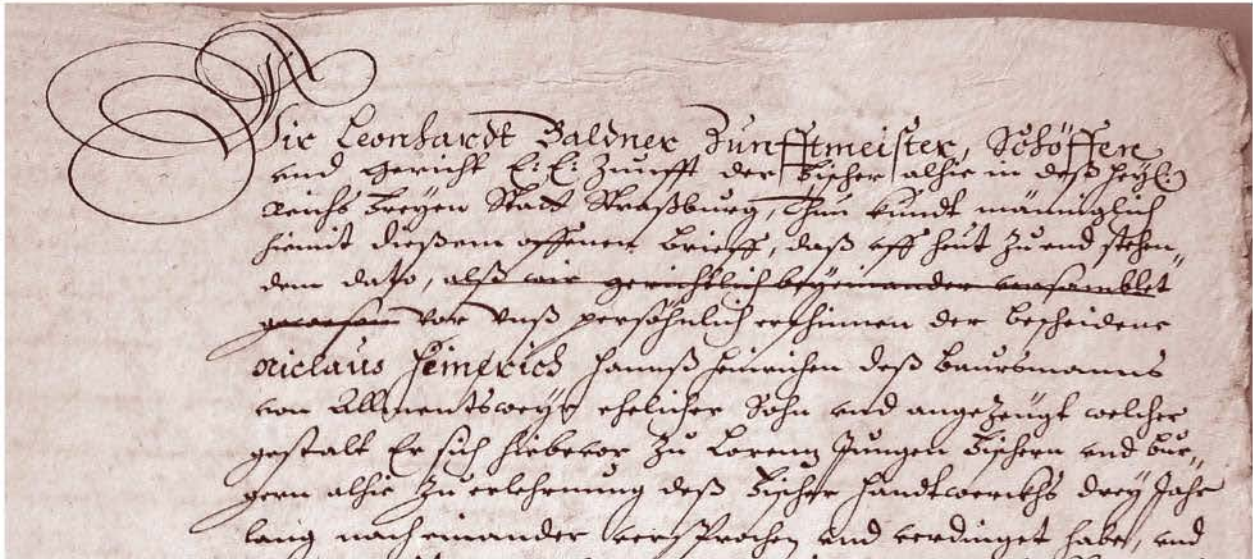 Wir Leonhardt Baldner Zunfftmeister, Schöffen
und Gericht E: E: Zunfft der Fischer alhie in deß Heyl:
Reichs Freyen Statt Straßburg, Thun kundt männiglich
hiemit dießem offenen Brieff, daß uff heut zu end stehen„
dem dato, alß wir gerichtlich beyeinander versamblet
gewesen vor unß persöhnlich erschinnen der bescheidene
Niclaus Heinrich Hannß Heinrichen deß Baursmanns
von Allmentsweyr ehelicher Sohn und angezeugt welcher
gestalt Er sich hiebevor zu Lorentz Jungen Fischern und Bur„
gern alhie zu erlehrnung deß Fischer Handtwerckhs drey Jahr
lang nach einander versprochen und verdinget habe, und